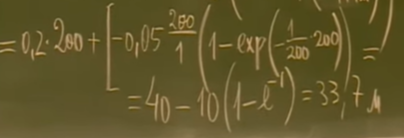 = 0,2·200 + [-0,05 200/1 (1-exp(-1/200·200)) =
= 40 - 10(1-e⁻¹) = 33,7 м